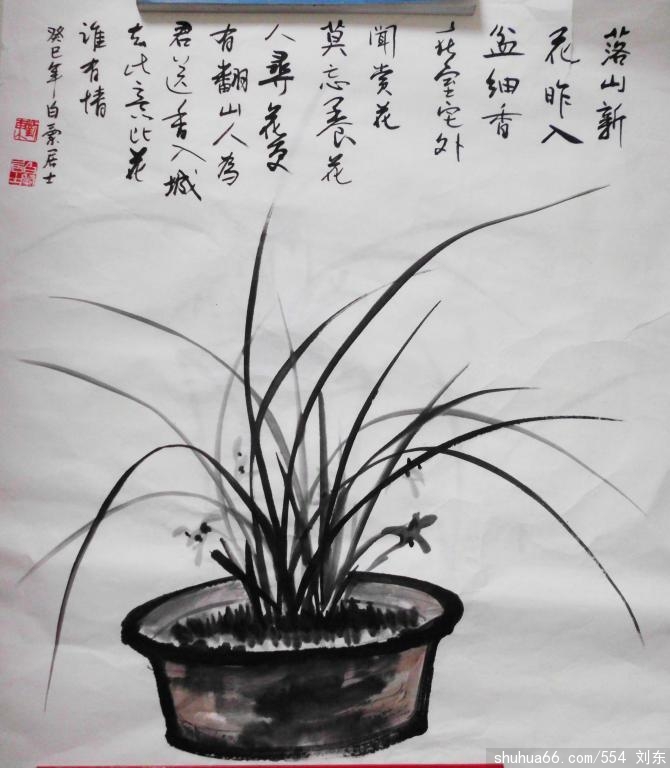 落山新
花昨入
盆细香
在室宅外
闻赏花
莫忘养花
人寻花更
有翻山人为
君送香入城
去比意比花
谁有情
癸巳年白云居士
shuhua66.com/554 刘东